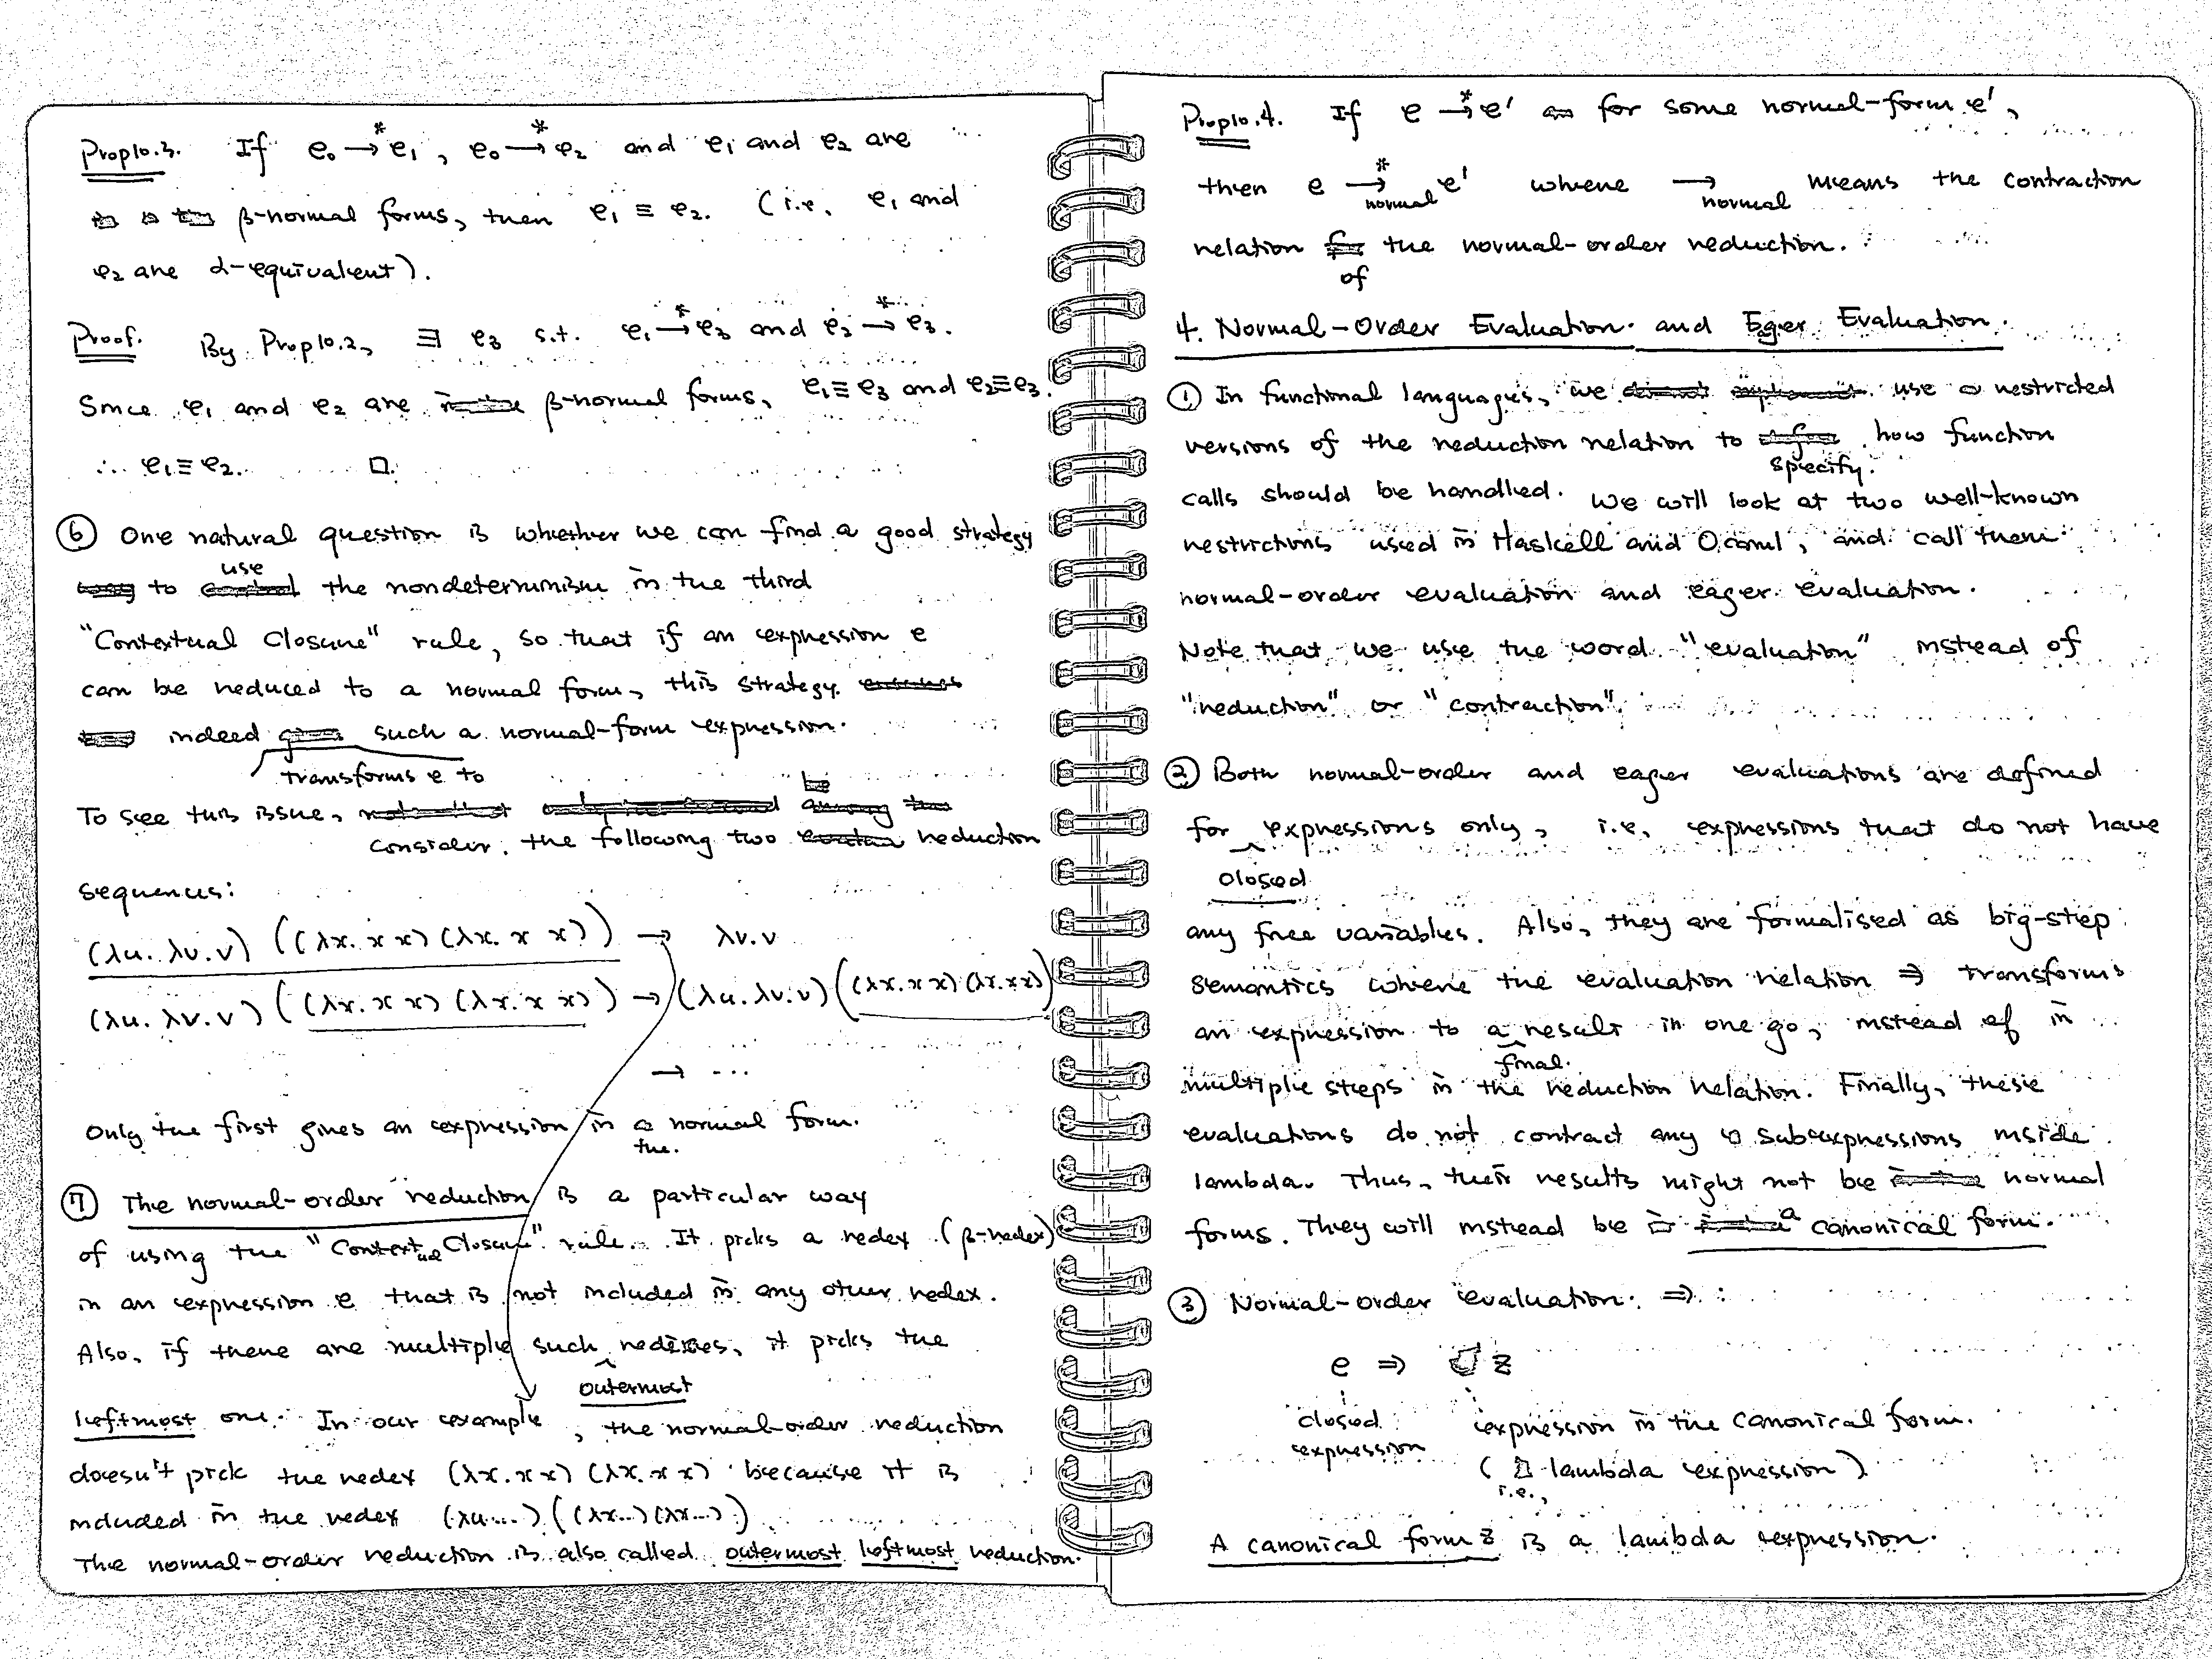 Prop10.3. If e₀ →* e₁, e₀ →* e₂ and e₁ and e₂ are
β-normal forms, then e₁ ≡ e₂. (i.e, e₁ and
e₂ are α-equivalent).
Proof. By Prop10.2, ∃ e₃ s.t. e₁ →* e₃ and e₂ →* e₃.
Since e₁ and e₂ are β-normal forms, e₁≡e₃ and e₂≡e₃.
∴ e₁≡e₂. □.
⑥ One natural question is whether we can find a good strategy
to use the nondeterminism in the third
"Contextual Closure" rule, so that if an expression e
can be reduced to a normal form, this strategy
indeed transforms e to such a normal-form expression.
To see this issue, consider the following two reduction
sequences:
(λu. λv.v) ((λx. x x) (λx. x x)) → λv.v
(λu. λv.v) ((λx. x x) (λx. x x)) → (λu. λv.v) ((λx. x x) (λx. x x))
→ ...
Only the first gives an expression in the normal form.
⑦ The normal-order reduction is a particular way
of using the "Contextual Closure" rule. It picks a redex (β-redex)
in an expression e that is not included in any other redex.
Also, if there are multiple such outermost redexes, it picks the
leftmost one. In our example, the normal-order reduction
doesn't pick the redex (λx. x x) (λx. x x) because it is
included in the redex (λu....) ((λx...) (λx...))
The normal-order reduction is also called outermost leftmost reduction.
Prop10.4. If e →* e' for some normal-form e',
then e →*normal e' where →normal means the contraction
relation of the normal-order reduction.
4. Normal-Order Evaluation and Eger Evaluation.
① In functional languages, we use a restricted
versions of the reduction relation to specify how function
calls should be handled. We will look at two well-known
restrictions used in Haskell and Ocaml, and call them
normal-order evaluation and eager evaluation.
Note that we use the word "evaluation" instead of
"reduction" or "contraction".
② Both normal-order and eager evaluations are defined
for closed expressions only, i.e, expressions that do not have
any free variables. Also, they are formalised as big-step
semantics where the evaluation relation ⇒ transforms
an expression to a final result in one go, instead of in
multiple steps in the reduction relation. Finally, these
evaluations do not contract any subexpressions inside
lambda. Thus, their results might not be normal
forms. They will instead be a canonical form.
③ Normal-order evaluation ⇒ :
e ⇒ z
closed expression in the canonical form.
expression (i.e., lambda expression)
A canonical form z is a lambda expression.